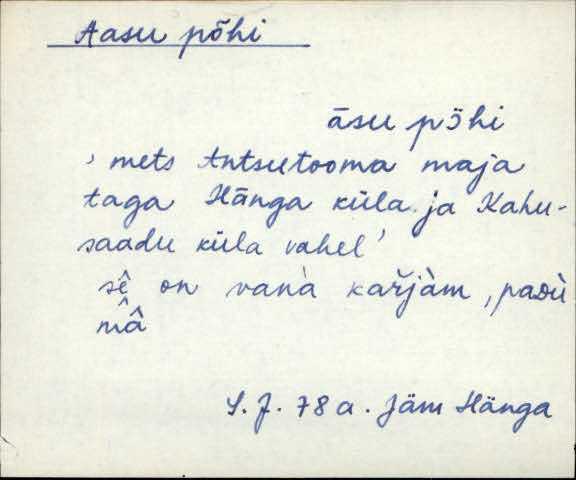 Aasu põhi
āsu pɔ̈hi
' mets Antsutooma maja
taga Hänga küla ja Kahu-
saadu küla vahel '
sê on vanà kařjàm, paᴅù
mâ
S. J. 78 a. Jäm Hänga